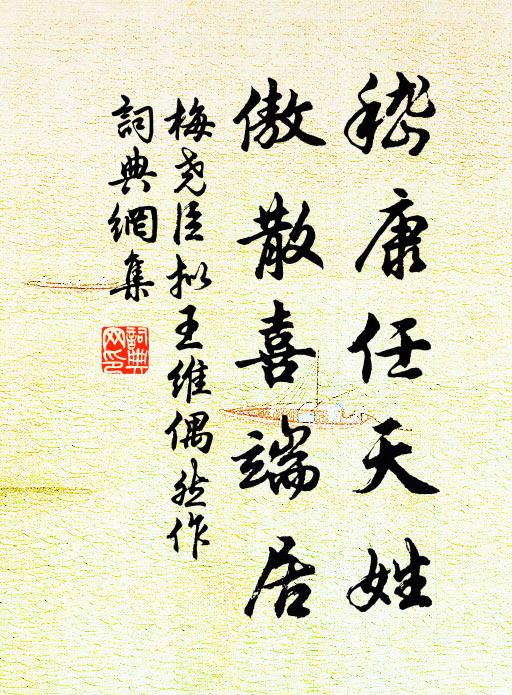 嵇康任天姓
傲散喜端居
梅尧臣拟王維偶然作
詞典網集
詞典网印